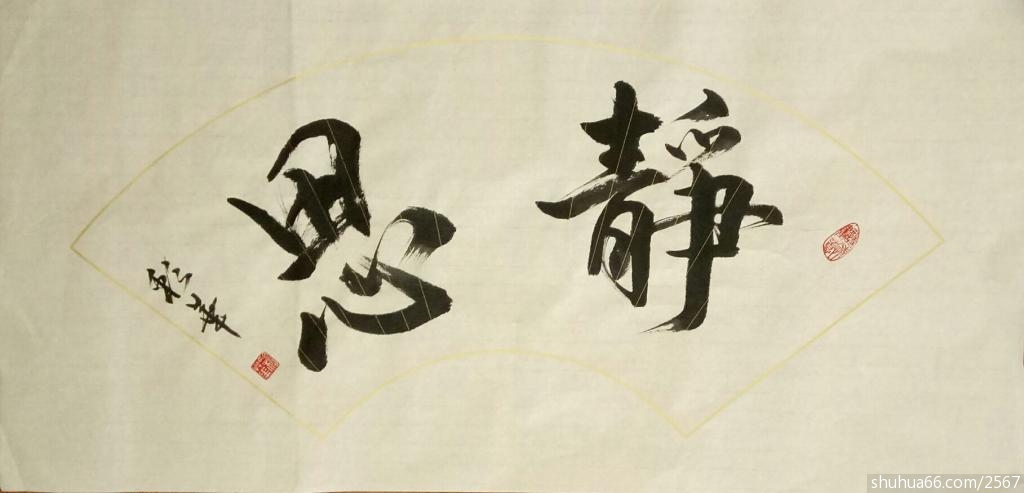 靜思
shuhua66.com/2567